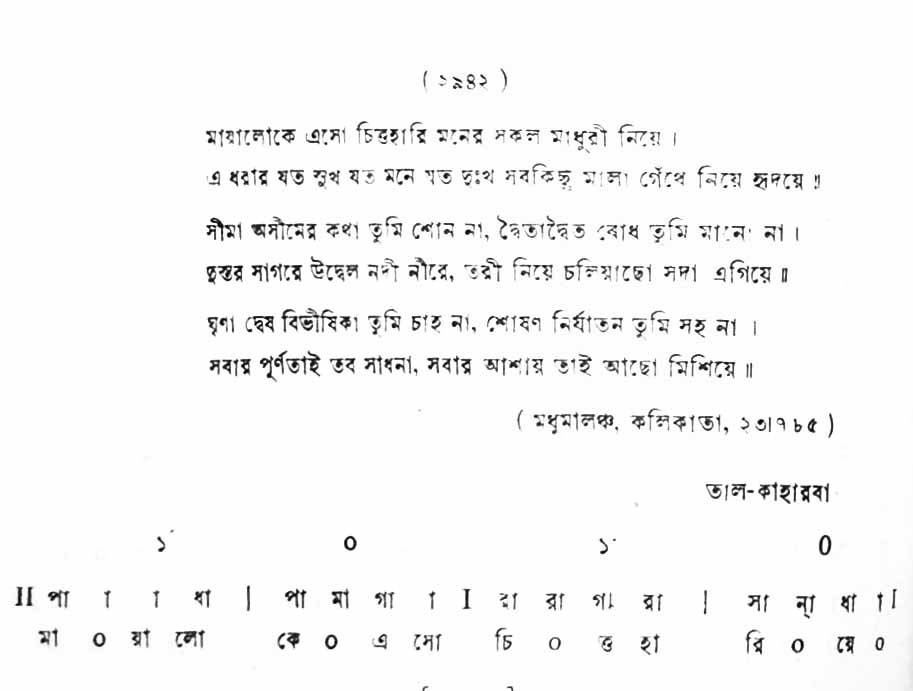 ( ১৯৪২ )
মায়ালোকে এসো চিত্তহারি মনের সকল মাধুরী নিয়ে ।
এ ধরার যত সুখ যত মনে যত দুঃখ সবকিছু মালা গেঁথে নিয়ে হৃদয়ে ॥
সীমা অসীমের কথা তুমি শোন না, দ্বৈতাদ্বৈত বোধ তুমি মানো না ।
দুস্তর সাগরে উদ্বেল নদী নীরে, তরী নিয়ে চলিয়াছো সদা এগিয়ে ॥
ঘৃণা দ্বেষ বিভীষিকা তুমি চাহ না, শোষণ নির্যাতন তুমি সহ না ।
সবার পূর্ণতাই তব সাধনা, সবার আশায় তাই আছো মিশিয়ে ॥
( মধুমালঞ্চ, কলিকাতা, ২৩।৭৮৫ )
তাল-কাহারবা
১ ০ ১ ০
II পা া া ধা | পা মা গা া I রা রা গা রা | সা ন্া ধা া I
মা ০ য়া লো কে ০ এ সো চি ০ ত্ত হা রি ০ য়ে ০